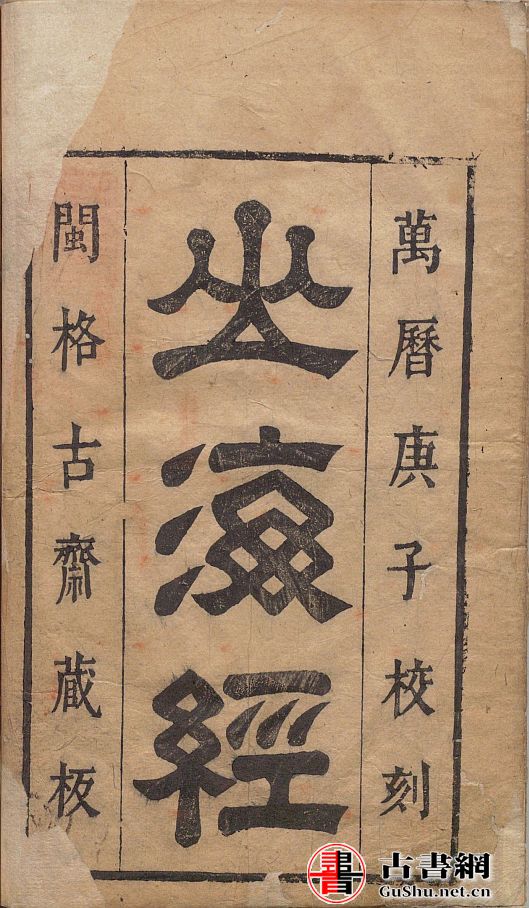 萬曆庚子校刻
山海經
閩格古齋藏板
書
古書網
GuShu.net.cn